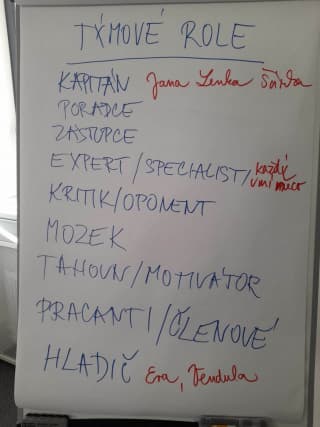 TÝMOVÉ ROLE
KAPITÁN Jana Lenka Šárka
PORADCE
ZÁSTUPCE
EXPERT/SPECIALIST/každý umí něco
KRITIK/OPONENT
MOZEK
TAHOUN/MOTIVÁTOR
PRACANTI/ČLENOVÉ
HLADIČ Eva, Vendula